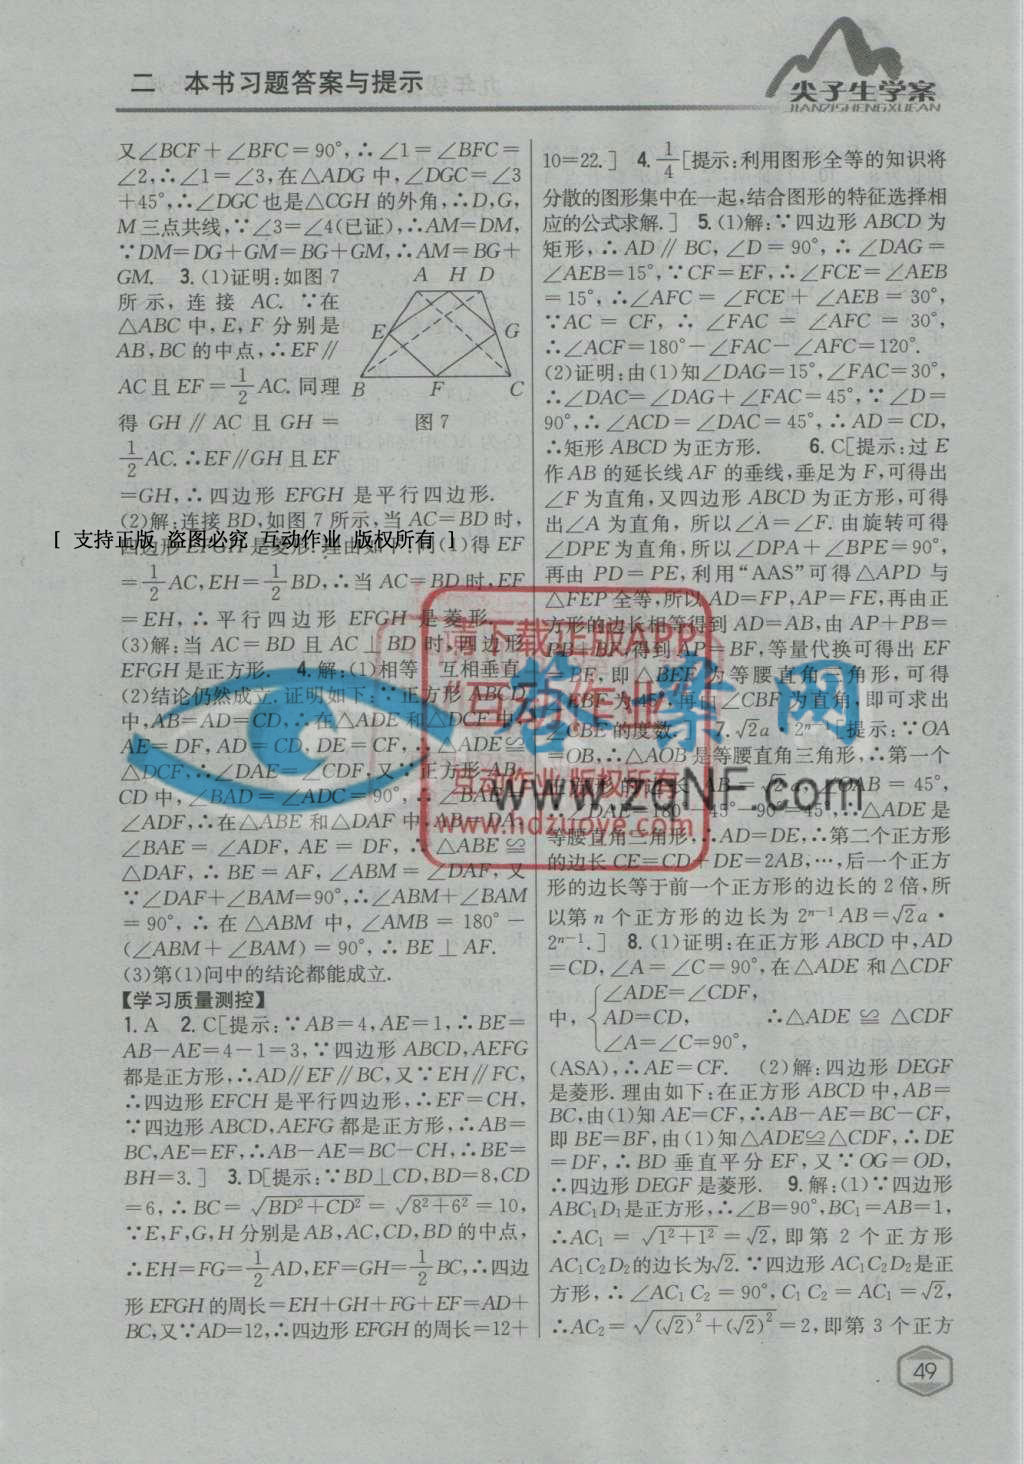 二 本书习题答案与提示
尖子生学案
JIANZISHENGXUEAN
又∠BCF+∠BFC=90°,∴∠1=∠BFC=
∠2,∴∠1=∠3,在△ADG中,∠DGC=∠3
+45°,∴∠DGC也是△CGH的外角,∴D,G,
M三点共线,∵∠3=∠4(已证),∴AM=DM,
∵DM=DG+GM=BG+GM,∴AM=BG+
GM. 3.(1)证明:如图7
所示,连接 AC. ∵在
△ABC中,E,F分别是
AB,BC的中点,∴EF∥
AC且EF=1/2AC.同理
得 GH∥AC 且 GH=
1/2AC.∴EF∥GH且EF
A H D
E G
B F C
图7
=GH,∴四边形 EFGH 是平行四边形.
(2)解:连接BD,如图7所示,当AC=BD时,
四边形EFGH是菱形.理由如下:同(1)得EF
=1/2AC,EH=1/2BD,∴当AC=BD时,EF
=EH,∴平行四边形 EFGH 是菱形.
(3)解:当 AC=BD 且 AC⊥BD 时,四边形
EFGH是正方形. 4.解:(1)相等 互相垂直
(2)结论仍然成立.证明如下:∵正方形ABCD
中,AB=AD=CD,∴在△ADE和△DCF中,
AE=DF,AD=CD,DE=CF,∴△ADE≌
△DCF,∴∠DAE=∠CDF,又∵正方形AB-
CD中,∠BAD=∠ADC=90°,∴∠BAE=
∠ADF,∴在△ABE和△DAF中,AB=DA,
∠BAE=∠ADF,AE=DF,∴△ABE≌
△DAF,∴BE=AF,∠ABM=∠DAF,又
∵∠DAF+∠BAM=90°,∴∠ABM+∠BAM
=90°,∴在△ABM中,∠AMB=180°-
(∠ABM+∠BAM)=90°,∴BE⊥AF.
(3)第(1)问中的结论都能成立.
【学习质量测控】
1.A 2.C[提示:∵AB=4,AE=1,∴BE=
AB-AE=4-1=3,∵四边形ABCD,AEFG
都是正方形,∴AD∥EF∥BC,又∵EH∥FC,
∴四边形EFCH是平行四边形,∴EF=CH,
∵四边形ABCD,AEFG都是正方形,∴AB=
BC,AE=EF,∴AB-AE=BC-CH,∴BE=
BH=3.] 3.D[提示:∵BD⊥CD,BD=8,CD
=6,∴BC=√(BD²+CD²)=√(8²+6²)=10,
∵E,F,G,H分别是AB,AC,CD,BD的中点,
∴EH=FG=1/2AD,EF=GH=1/2BC,∴四边
形EFGH的周长=EH+GH+FG+EF=AD+
BC,又∵AD=12,∴四边形EFGH的周长=12+
10=22.] 4.1/4[提示:利用图形全等的知识将
分散的图形集中在一起,结合图形的特征选择相
应的公式求解.] 5.(1)解:∵四边形ABCD为
矩形,∴AD∥BC,∠D=90°,∴∠DAG=
∠AEB=15°,∵CF=EF,∴∠FCE=∠AEB
=15°,∴∠AFC=∠FCE+∠AEB=30°,
∵AC=CF,∴∠FAC=∠AFC=30°,
∴∠ACF=180°-∠FAC-∠AFC=120°.
(2)证明:由(1)知∠DAG=15°,∠FAC=30°,
∴∠DAC=∠DAG+∠FAC=45°,∵∠D=
90°,∴∠ACD=∠DAC=45°,∴AD=CD,
∴矩形ABCD为正方形. 6.C[提示:过E
作AB的延长线AF的垂线,垂足为F,可得出
∠F为直角,又四边形ABCD为正方形,可得
出∠A为直角,所以∠A=∠F.由旋转可得
∠DPE为直角,所以∠DPA+∠BPE=90°,
再由PD=PE,利用“AAS”可得△APD与
△FEP全等,所以AD=FP,AP=FE,再由正
方形的边长相等得到AD=AB,由AP+PB=
PB+BF,得到AP=BF,等量代换可得出EF
=BF,即△BEF为等腰直角三角形,可得
∠EBF为45°,再由∠CBF为直角,即可求出
∠CBE的度数.] 7.√2a·2ⁿ⁻¹[提示:∵OA
=OB,∴△AOB是等腰直角三角形,∴第一个
正方形的边长AB=√2a,∵∠OAB=45°,
∴∠DAE=180°-45°-90°=45°,∴△ADE是
等腰直角三角形,∴AD=DE,∴第二个正方形
的边长CE=CD+DE=2AB,…,后一个正方
形的边长等于前一个正方形的边长的2倍,所
以第n个正方形的边长为2ⁿ⁻¹AB=√2a·
2ⁿ⁻¹.] 8.(1)证明:在正方形ABCD中,AD
=CD,∠A=∠C=90°,在△ADE和△CDF
中,{∠ADE=∠CDF,
AD=CD, ∴△ADE≌△CDF
∠A=∠C=90°,
(ASA),∴AE=CF. (2)解:四边形DEGF
是菱形.理由如下:在正方形ABCD中,AB=
BC,由(1)知AE=CF,∴AB-AE=BC-CF,
即BE=BF,由(1)知△ADE≌△CDF,∴DE
=DF,∴BD垂直平分EF,又∵OG=OD,
∴四边形DEGF是菱形. 9.解:(1)∵四边形
ABC₁D₁是正方形,∴∠B=90°,BC₁=AB=1,
∴AC₁=√(1²+1²)=√2,即第2个正方形
AC₁C₂D₂的边长为√2.∵四边形AC₁C₂D₂是正
方形,∴∠AC₁C₂=90°,C₁C₂=AC₁=√2,
∴AC₂=√((√2)²+(√2)²)=2,即第3个正方
49
[ 支持正版 盗图必究 互动作业 版权所有 ]
请下载正版APP
“互动作业”
互动作业版权所有
www.hdzuoye.com
答案网
www.zqNF.com